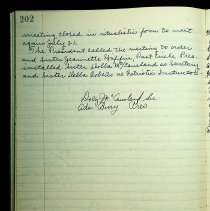 202
meeting closed in ritualistic form to meet
again July 21.
The President called the meeting to order
and Sister Jeannette Happin, Past Circle Pres.
installed Sister McCausland as Secretary
and Sister Della as Patriotic Instructor
Sec
Ada Pres